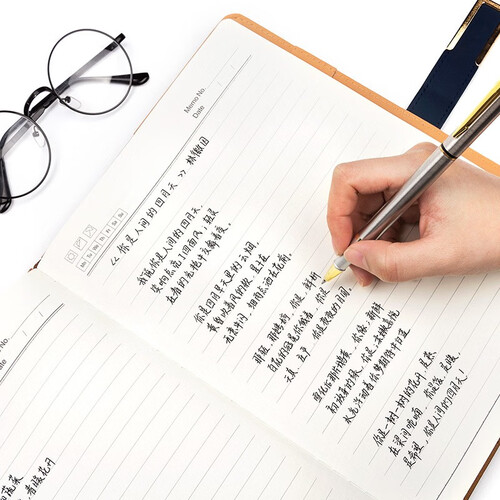 Memo No.
Date
Mo Tu We Th Fr Sa Su
《你是人间的四月天》 林徽因
我说你是人间的四月天，
笑响点亮了四面风；轻灵
在春的光艳中交舞着变。
你是四月早天里的云烟，
黄昏吹着风的软，星子在
无意中闪，细雨点洒在花前。
那轻，那娉婷，你是，鲜妍
百花的冠冕你戴着，你是
天真，庄严，你是夜夜的月圆。
雪化后那片鹅黄，你像；新鲜
初放芽的绿，你是；柔嫩喜悦
水光浮动着你梦期待中白莲。
你是一树一树的花开，是燕
在梁间呢喃，你是爱，是暖，
是希望，你是人间的四月天！
Memo No.
Date
蔬菜
春暖花开